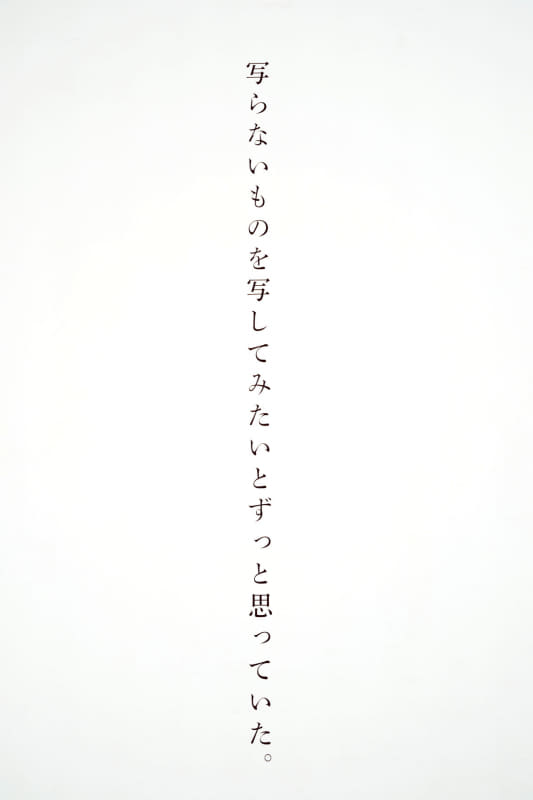 写らないものを写してみたいとずっと思っていた。